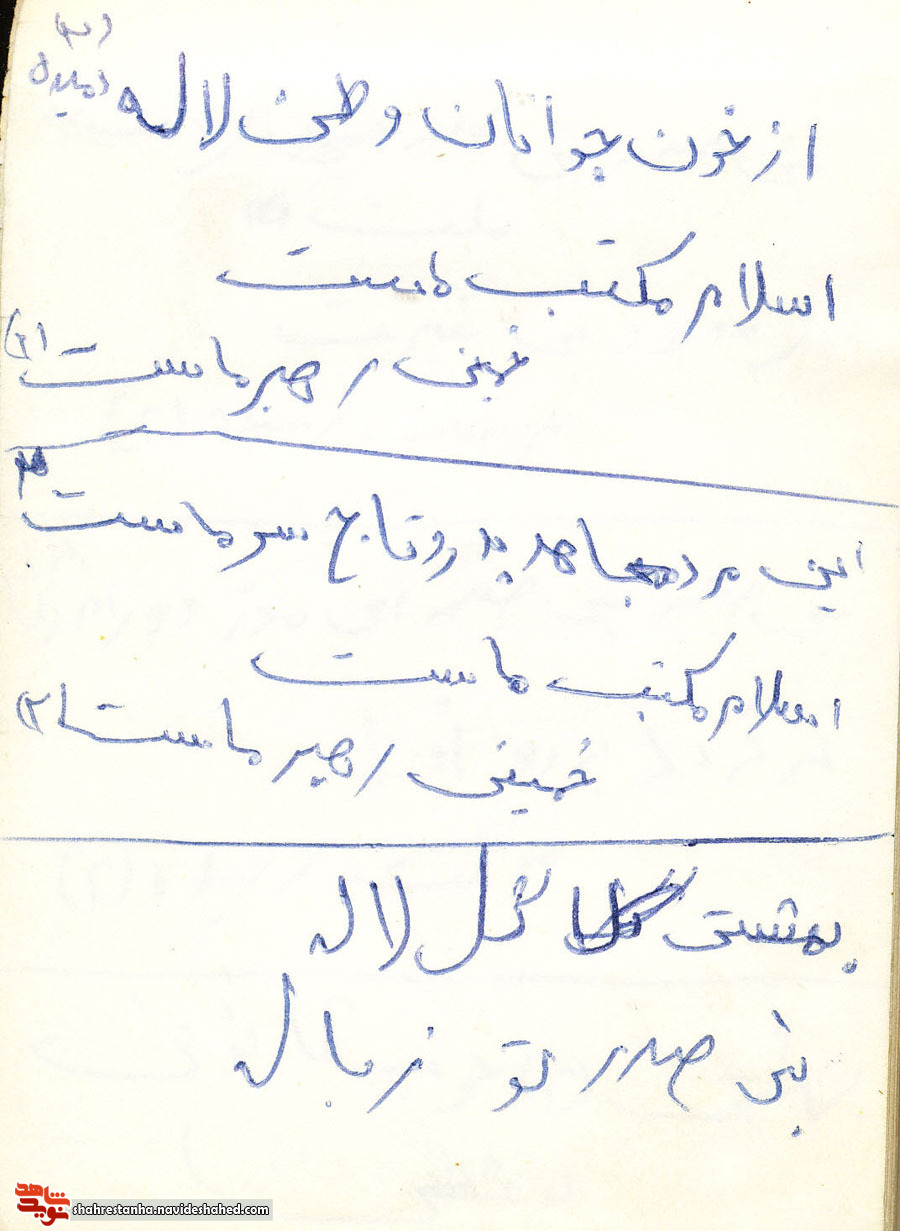 (۲)
از خون جوانان وطن لاله دمیده
اسلام مکتب ماست
خمینی رهبر ماست (۲)
این مرد مجاهد پدر و تاج سر ماست
اسلام مکتب ماست
خمینی رهبر ماست (۲)
بهشتی گل لاله
بنی صدر تو زباله
شاهد
نوید
shahrestanha.navideshahed.com